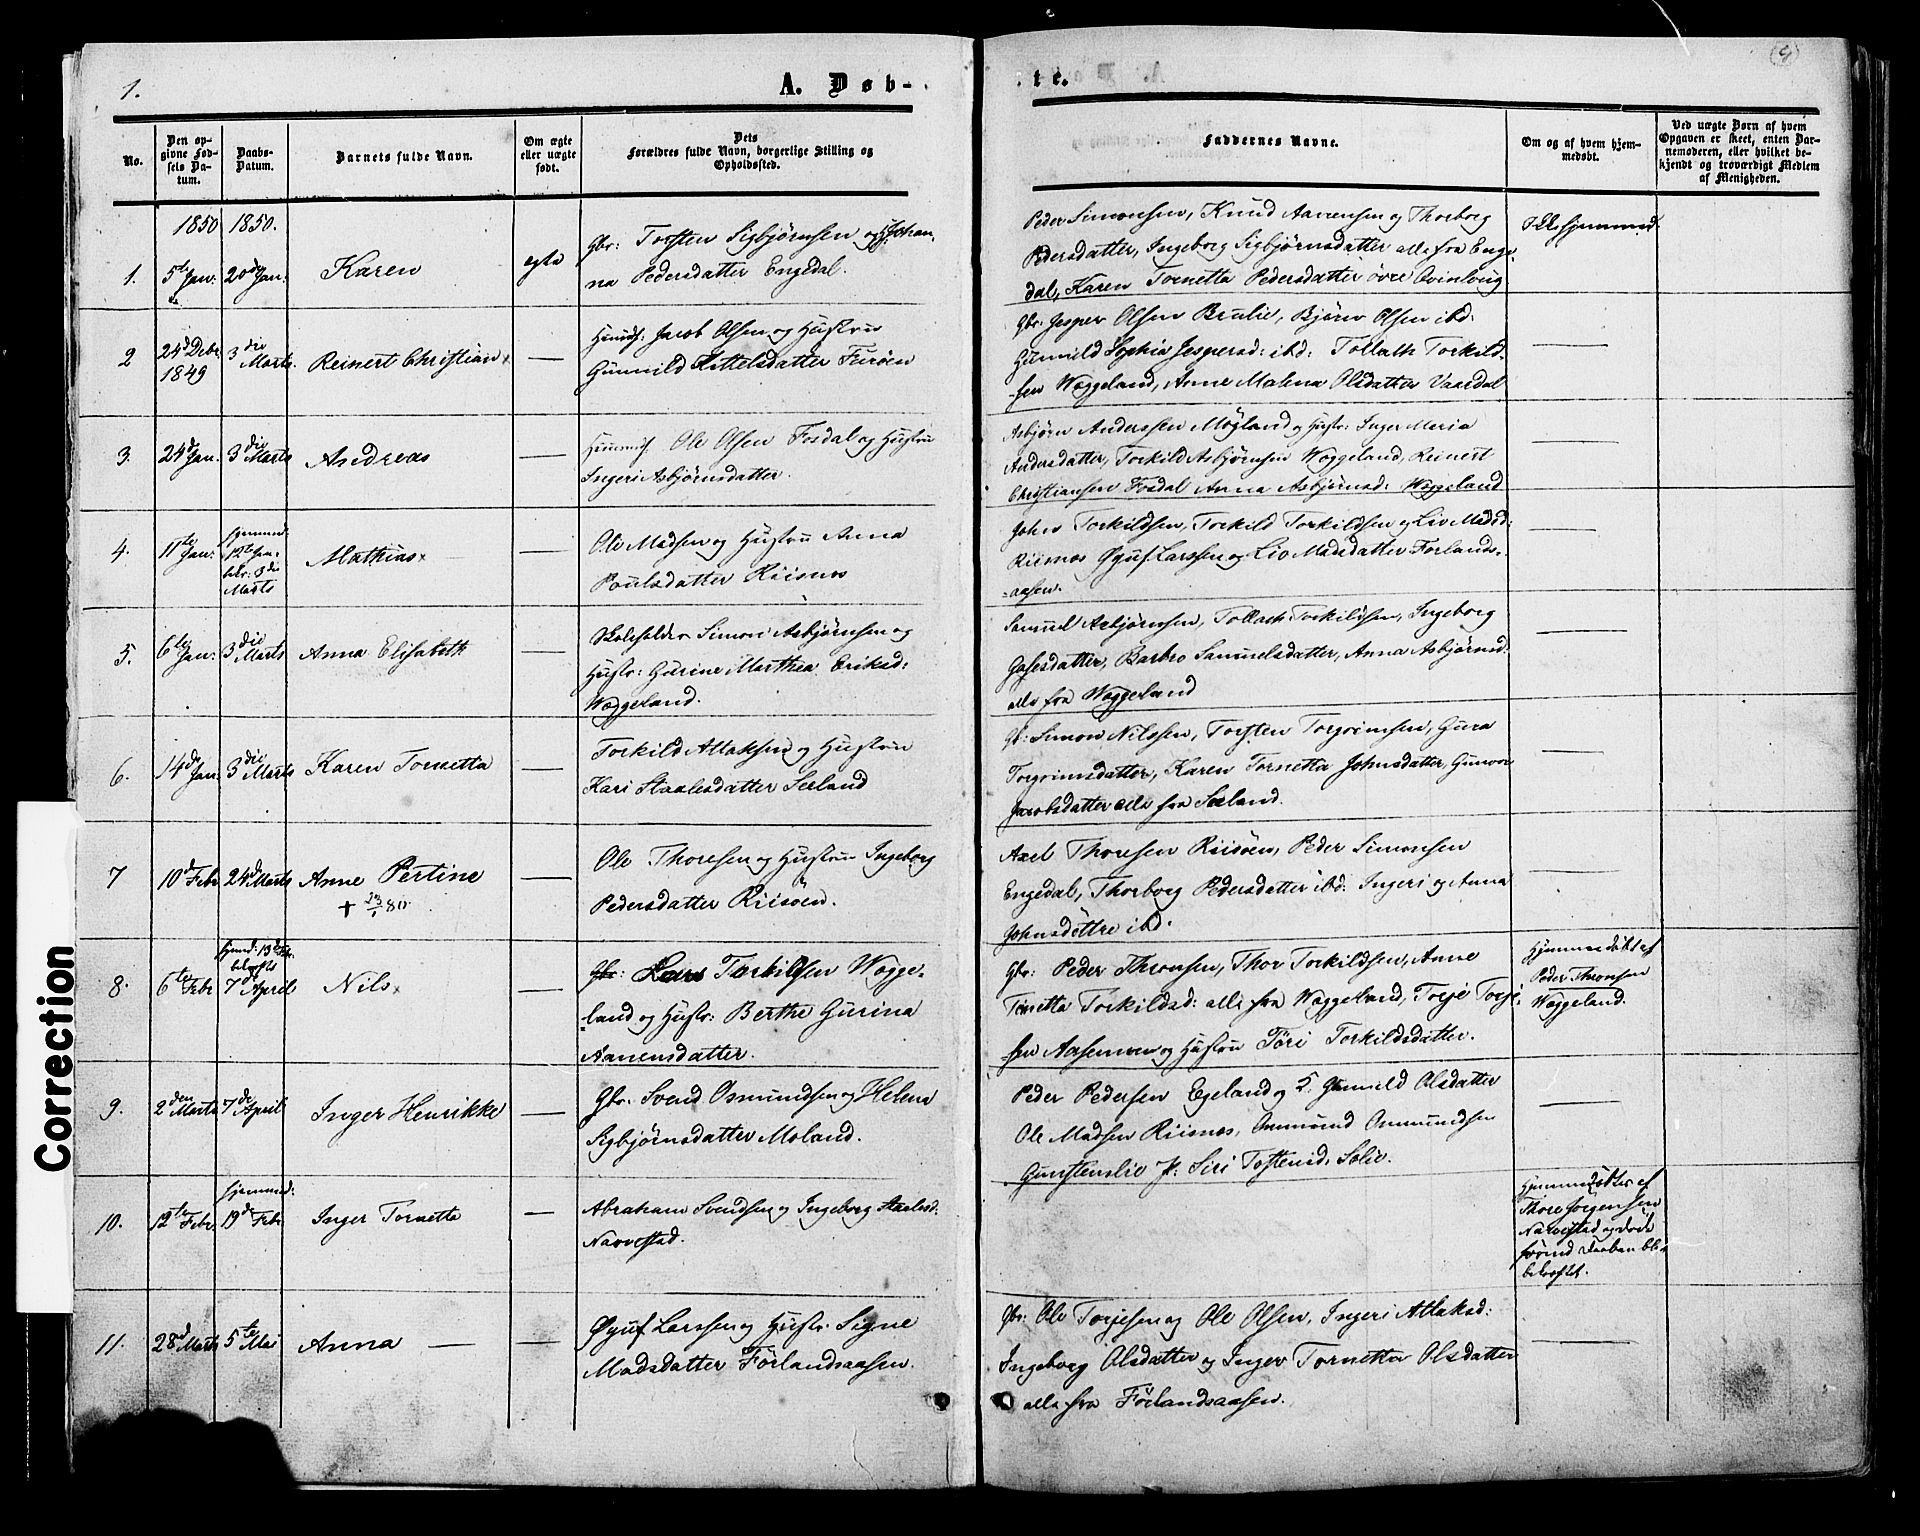 1.
A. Døb-
te.
No.
Den op-
givne Fød-
sels Da-
tum.
Daabs-
Datum.
Barnets fulde Navn.
Om ægte
eller uægte
født.
Dets
Forældres fulde Navn, borgerlige Stilling og
Opholdssted.
Faddernes Navne.
Om og af hvem hjem-
medøbt.
Ved uægte Børn af hvem
Opgaven er skeet, enten Bar-
nemoderen, eller hvilket be-
kjendt og troværdigt Medlem
af Menigheden.
1850
1850.
1.
5te Jan:
20de Jan:
Karen
ægte
Gbr: Torsten Sigbjørnsen og Johan-
na Pedersdatter Engedal.
Peder Simonsen, Knud Aanensen og Thorborg
Pedersdatter, Ingeborg Sigbjørnsdatter alle fra Enge-
dal, Karen Tornetta Pedersdatter øvre
2
24d Debr
1849
3die
Marts.
Reinert Christian
Huusf: Jacob Olsen og Hustru
Gunnild Kittelsdatter
Gbr: Jesper Olsen Brulie, Bjørn Olsen ibd:
Gunnild Sophia Jespersd: ibd: Tollak Torkild-
sen Wæggeland, Anne Malena Olsdatter
3.
24d Jan.
3die Marts
Andreas
Huusmd: Ole Olsen Fosdal og Hustru
Ingeri Asbjørnsdatter.
Asbjørn Anderssen Mögland og Hustr: Inger Maria
Andersdatter, Torkild Asbjørnsen Wæggeland, Reinert
Christiansen Fosdal Anna Asbjørnsd: Wæggeland
4.
11te
Jan:
Hjemmed:
12te Jan.
bekr: 3die
Marts
Mathias
Ole Madsen og Hustru Anna
Poulsdatter Riisnes
John Torkildsen, Torkild Torkildsen og Liv Madsd:
Riisnes Øyuf Larssen og Liv Madsdatter Forlands-
aasen.
5.
6te
Jan:
3die
Marts
Anna Elisabeth
Skoleholder Simon Asbjørnsen og
Hustr: Gurine Marthea Eriksd:
Wæggeland.
Samuel Asbjørnsen, Tollach Torkildsen, Ingeborg
Barbro Samuelsdatter, Anna Asbjørnsd.
alle fra Wæggeland
6.
14de
Jan:
3die
Marts
Karen Tornetta
Torkild Atlaksen og Hustru
Kari Staalesdatter Seland
Gb: Simon Nilssen, Torsten Torgrimsen, Gura
Torgrimsdatter, Karen Tornetta Johnsdatter, Gunvor
Jacobsdatter alle fra Seland.
7
10d Febr
24d Marts
Anne Pertine
+ 23/1 80.
Ole Thoresen og Hustru Ingeborg
Pedersdatter Riisöen.
Axel Thoresen Riisöen, Peder Simonsen
Engedal, Thorborg Pedersdatter ibd. Ingeri og Anna
Johnsdöttre ibd.
8.
6te Febr
Hjemd: 13d Febr.
7d April
Nils
Gbr: Lars Torkildsen Wægge-
land og Hustr: Berthe Gurina
Aanensdatter.
Gbr: Peder Thronsen, Thor Torkildsen, Anne
Tonetta Torkildsd: alle fra Wæggeland, Torje Torje-
sen Aasemoen og Hustru Töri Torkildsdatter.
Hjemmedöbt af
Peder Thronsen
Wæggeland.
9.
2den
Marts
7de
April
Inger Henrikke
Gbr: Svend Osmundsen og Helena
Sigbjørnsdatter Moland.
Peder Pedersen Egeland og Gunnild Olsdatter
Ole Madsen Riisnes, Ommund Ommundsen
Siri Tostensd. Solie.
10.
12te Febr.
Hjemmed:
19de Febr
Inger Tornetta
Abraham Svendsen og Ingeborg Staalesd.
Narvestad.
Hjemmedöbt af
Thore Jörgensen
Narvestad og döde
förend Daaben blev
bekræftet.
11.
28d Marts
5te Mai
Anna
Øyuf Larssen og Hustr: Signe
Madsdatter Förlandsaasen.
Gbr: Ole Torjesen og Ole Olsen, Ingeri Atlaksd:
Ingeborg Olsdatter og Inger Tornetta Olsdatter
alle fra Förlandsaasen.
Correction